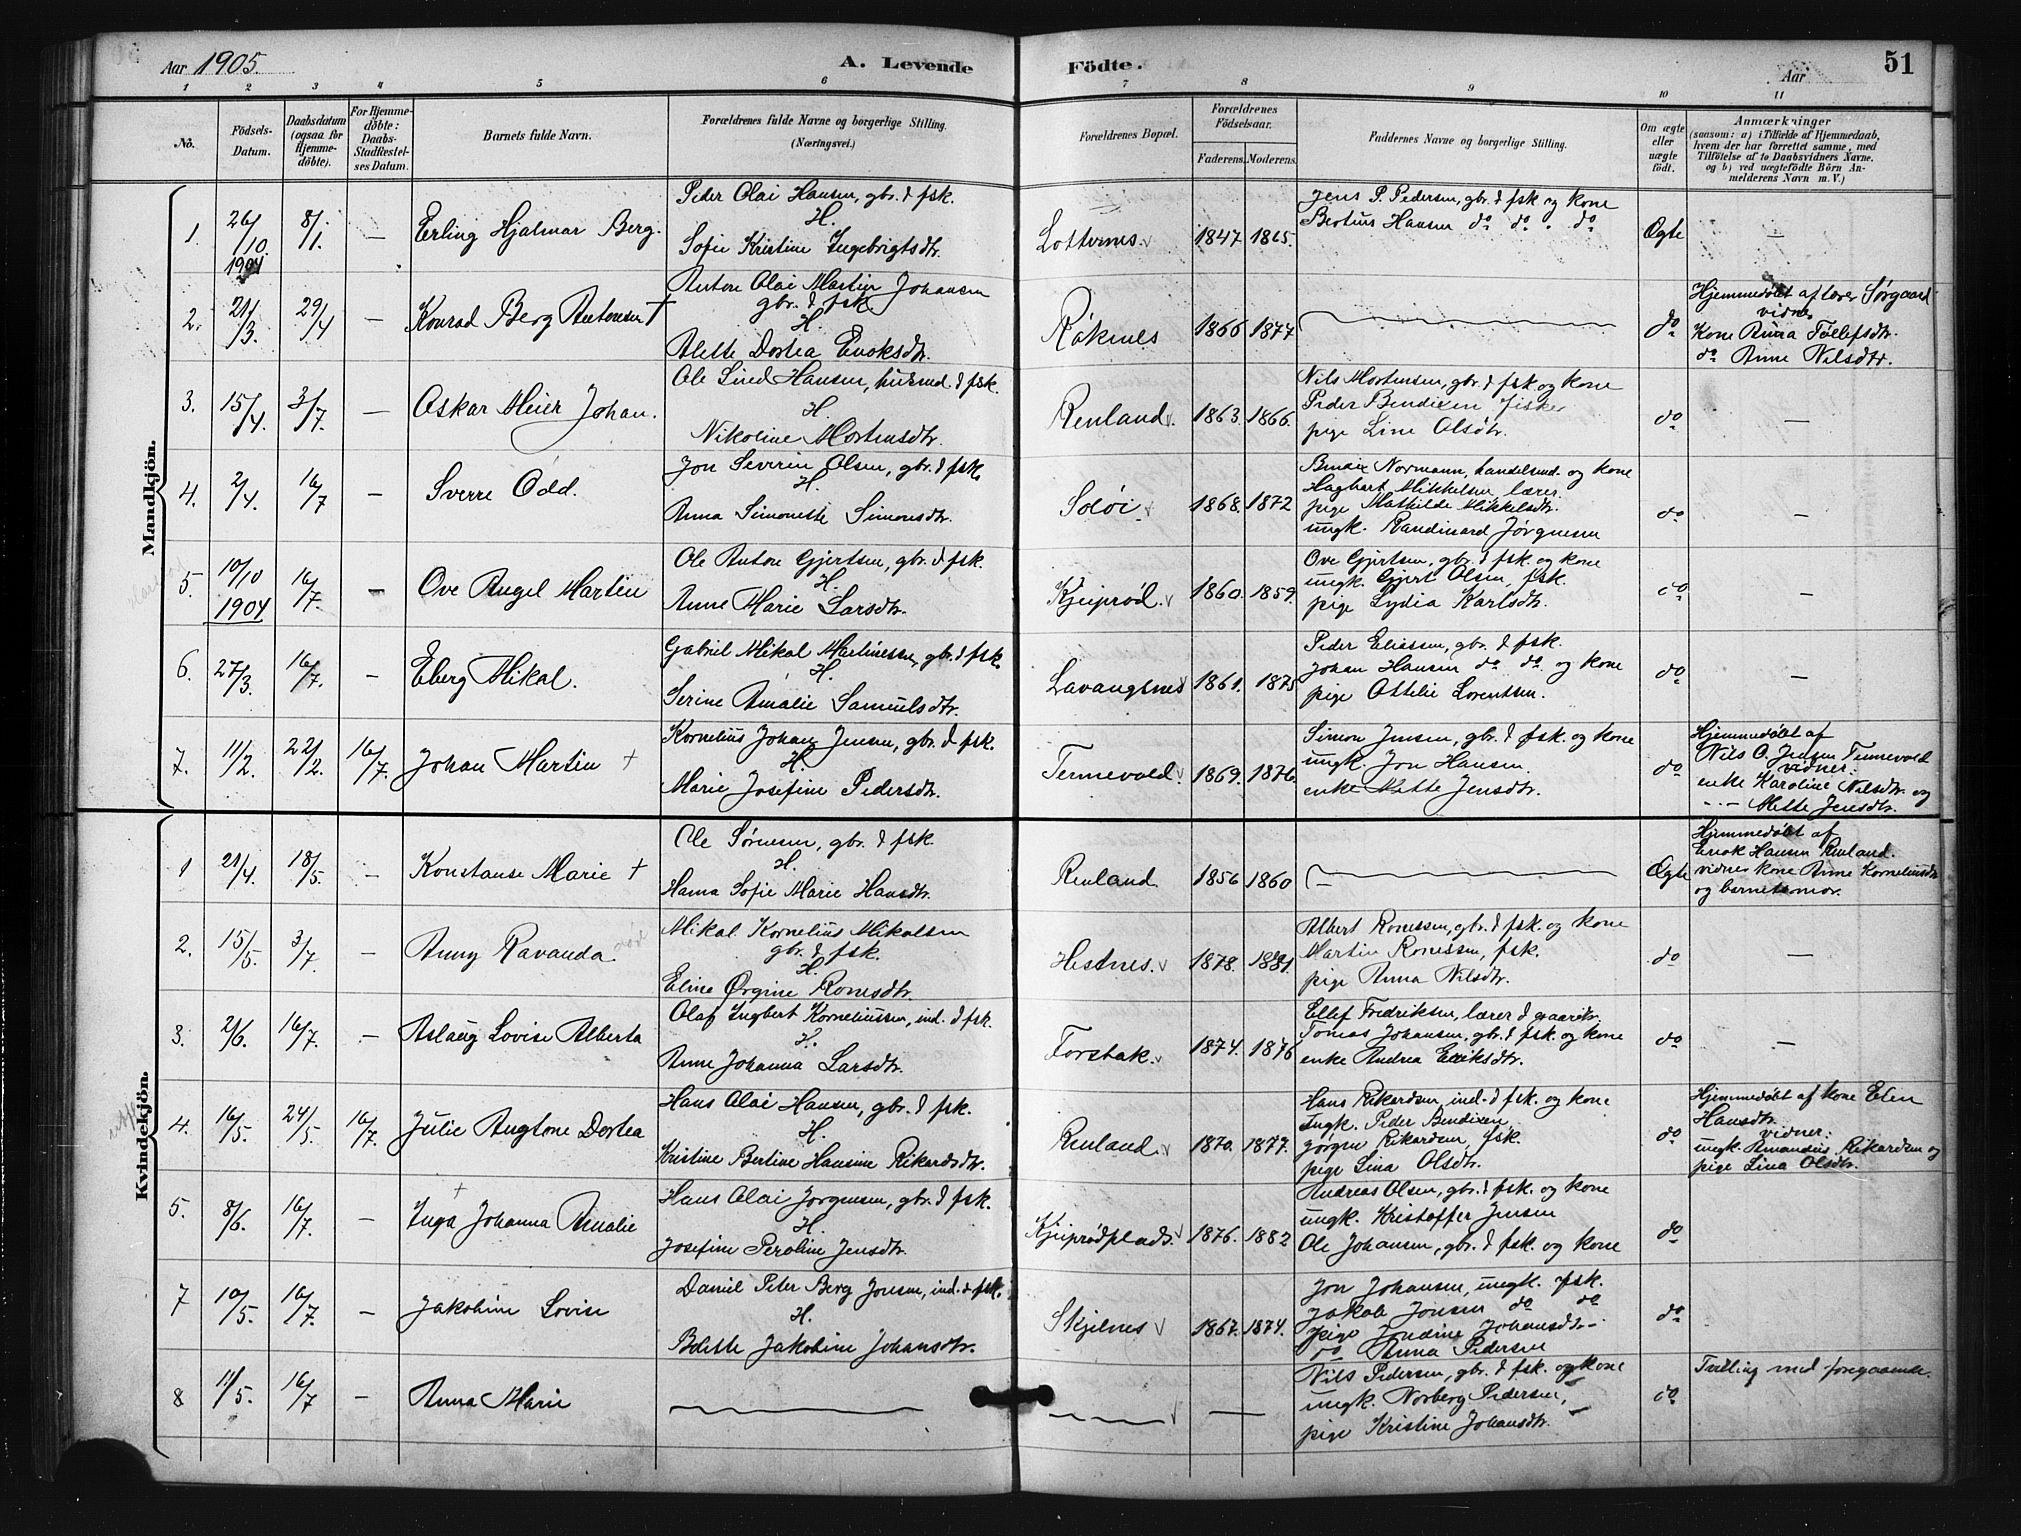 Aar 1905.
A. Levende
Födte.
Aar
51
1 2 3 4 5 6 7 8 9 10 11
No.
Födsels-
Datum.
Daabsdatum
(ogsaa for
Hjemme-
döbte).
For Hjemme-
döbte:
Daabs-
Stadfæstel-
ses Datum.
Barnets fulde Navn.
Forældrenes fulde Navne og borgerlige Stilling.
(Næringsvei.)
Forældrenes Bopæl.
Forældrenes
Födselsaar.
Faderens. Moderens.
Faddernes Navne og borgerlige Stilling.
Om ægte
eller
uægte
födt.
Anmærkninger
(saasom: a) i Tilfælde af Hjemmedaab,
hvem der har forrettet samme, med
Tilföielse af to Daabsvidners Navne,
og b) ved uægtefödte Börn An-
melderens Navn m. V.)
Mandkjön.
1. 26/10 1904 8/1. — Erling Hjalmar Berg.
Peder Olai Hansen, gbr. & fsk.
H.
Sofie Kristine Ingebrigtsdtr.
Lotternes. 1847 1865.
Jens P. Pedersen, gbr. & fsk og kone
Bertius Hansen do do. do
Ægte —
2. 21/3. 29/4 — Konrad Berg Antonsen †
Anton Olai Martin Johansen
gbr. & fsk.
H.
Alette Dortea Enoksdtr.
Røknes 1866 1877
do
Hjemmedøbt af lærer Sørgaard
vidner
Kone Anna Tollefsdtr.
do Anne Nilsdtr.
3. 15/4. 3/7. — Oskar Meier Johan.
Ole Lind Hansen, husmd. & fsk.
H.
Nikoline Mortensdtr.
Renland. 1863. 1866.
Nils Mortensen, gbr. & fsk og kone
Peder Bendixen fisker
pige Line Olsdtr.
do —
4. 2/4. 16/7 — Sverre Odd.
Jon Severin Olsen, gbr. & fsk.
H.
Anna Simonette Simonsdtr.
Soløi 1868. 1872
Bendix Normann, handelsmd. og kone
Hagbart Mikkelsen, lærer
pige Mathilde Mikkelsdtr.
ungk. Jørgensen
do —
5. 10/10 1904 16/7. — Ove Angel Martin
Ole Anton Gjertsen, gbr. & fsk.
H.
Anne Marie Larsdtr.
Kjeiprød. 1860. 1859.
Ove Gjertsen, gbr. & fsk. og kone
ungk. Gjert Olsen, fsk.
pige Lydia Karlsdtr.
do —
6. 27/3. 16/7. — Eberg Mikal.
Gabriel Mikal Martinessen, gbr. & fsk.
H.
Serine Amalie Samuelsdtr.
Lavangsnes 1861. 1875
Peder Eliassen, gbr. & fsk.
Johan Hansen do do. og kone
pige Ottilie Lorentsen.
do —
7. 11/2. 22/2. 16/7. Johan Martin †
Kornelius Johan Jensen, gbr. & fsk.
H.
Marie Josefine Pedersdtr.
Tennevold. 1869. 1876.
Simon Jensen, gbr. & fsk. og kone
ungk. Jon Hansen.
enke Mette Jensdtr.
do
Hjemmedøbt af
Nils O. Jensen Tennevold
vidner:
enke Karoline Nilsdtr. og
- - - Mette Jensdtr.
Kvindekjön.
1 21/4. 18/5. — Konstanse Marie †
Ole Sørensen, gbr. & fsk.
H.
Hanna Sofie Marie Hansdtr.
Renland 1856 1860
Ægte
Hjemmedøbt af
Enok Hansen Renland.
vidner kone Anne Korneliusdtr
og barnets mor.
2. 15/5. 3/7. — Anny Ravanda.
Mikal Kornelius Mikalsen
gbr. & fsk.
H.
Eline Ørgine Ronesdtr.
Hestnes. 1878. 1881.
Albert Ronessen, gbr. & fsk. og kone
Martin Ronessen, fsk.
pige Anna Nilsdtr.
do —
3. 2/6. 16/7. — Aslaug Lovise Alberta
Olaf Ingbert Korneliussen, ind. & fsk.
H.
Anne Johanna Larsdtr.
Forstak. 1874. 1876
Ellef Fredriksen, lærer & gaardbr.
Tomas Johansen, gbr. & fsk. og kone
enke Andrea Eriksdtr.
do —
4. 16/5. 24/5. 16/7. Julie Augtone Dortea
Hans Olai Hansen, gbr. & fsk.
H.
Kristine Bertine Hansine Rikardsdtr.
Renland. 1870. 1877.
Hans Rikardsen, ind. & fsk. og kone
Ungk. Peder Bendixen
Jørgen Rikardsen, fsk.
pige Lina Olsdtr.
do
Hjemmedøbt af kone Elen
Hansdtr.
vidner:
ungk. Amandus Rikardsen og
pige Lina Olsdtr.
5. 8/6. 16/7. — Inga Johanna Amalie
Hans Olai Jørgensen, gbr. & fsk.
H.
Josefine Peroline Jensdtr.
Kjeiprødplads. 1876. 1882
Andreas Olsen, gbr. & fsk. og kone
ungk. Kristoffer Jensen
Ole Johansen, gbr. & fsk. og kone
do
7 10/5. 16/7. — Jakobine Lovise
Daniel Peter Berg Jonsen, ind. & fsk.
H.
Bolette Jakobine Johansdtr.
Skjelnes 1867. 1874.
Jon Johansen, ungk. fsk.
Jakob Jonsen do do
pige Jondine Johansdtr.
do Anna Pedersen
do
8 11/5. 16/7 — Anna Marie
Nils Pedersen, gbr. & fsk. og kone
ungk. Norberg Pedersen,
pige Kristine Johansdtr.
do
Tvilling med foregaaende.